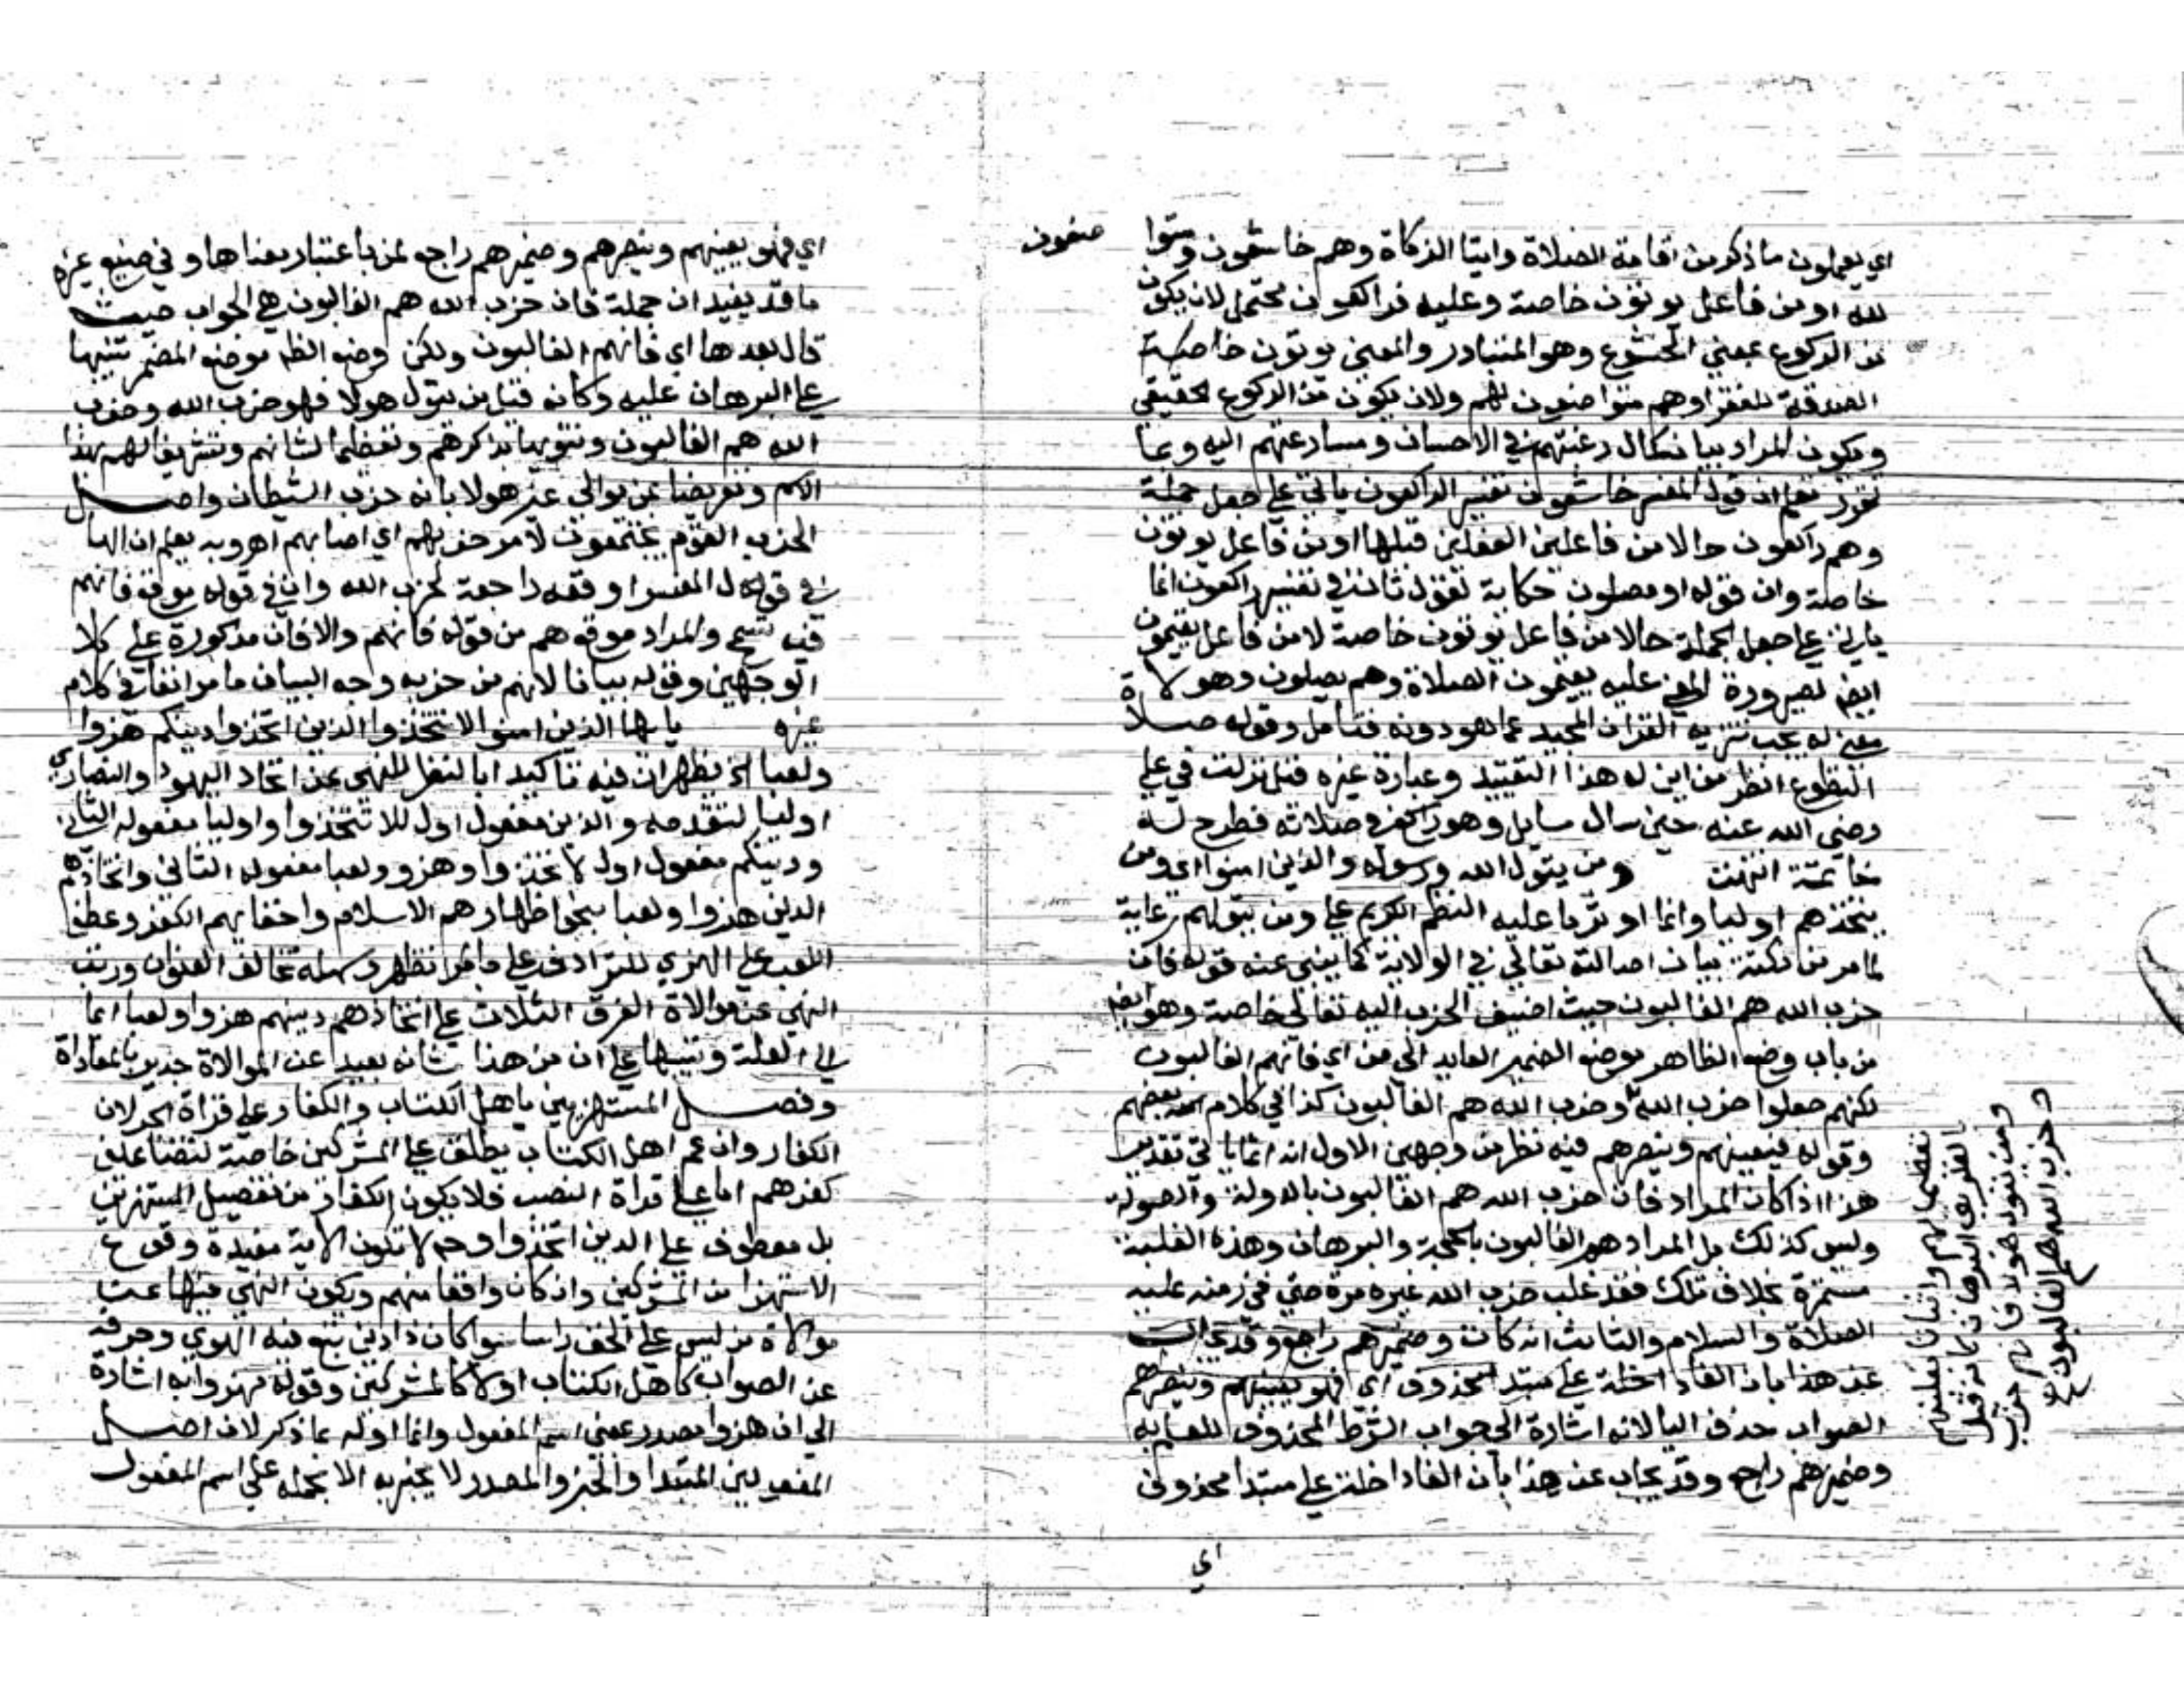 اي يعملون ماذكر من اقامة الصلاة وايتا الزكاة وهم خاشعون ومتوا
ضعون
لله او من فاعل يوتون خاصة وعليه فراكعون محتمل لان يكون
من الركوع بمعني الخشوع وهو المتبادر والمعني يوتون خاصة
الصدقة للفقرا وهم متواضعون لهم ولان يكون من الركوع الحقيقي
ويكون المراد بيان كمال رغبتهم في الاحسان ومسارعتهم اليه وبما
تقرر تعلم ان قول المفسر خاشعون تفسير الراكعون ياتي علي جعل جملة
وهم راكعون حالا من فاعلين الفعلين قبلها او من فاعل يوتون
خاصة وان قوله او مصلون حكاية لقول ثان في تفسير راكعون انما
ياتي علي جعل الجملة حالا من فاعل يوتون خاصة لا من فاعل يقيمون
ايض لصيرورة المعني عليه يقيمون الصلاة وهم يصلون وهو لا
معني له يجب تنزيه القران المجيد عما هو دونه فتامل وقوله صلاة
التطوع انظر من اين له هذا التقييد وعبارة غيره قيل نزلت في علي
رضي الله عنه حين سال سايل وهو راكع في صلاته فطرح له
خاتمه انتهت ومن يتول الله ورسوله والذين امنوا اي ومن
يتخذهم اوليا وانما اوثر ما عليه النظم الكريم علي ومن يتولهم رعاية
لما مر من نكتة بيان اصالته تعالي في الولاية كما ينبي عنه قوله فان
حزب الله هم الغالبون حيث اضيف الحزب اليه تعالي خاصة وهو ايض
من باب وضع الظاهر موضع الضمير العايد الي من اي فانهم الغالبون
لكنهم جعلوا حزب الله وحزب الله هم الغالبون كذا في كلام بعضهم
وقوله فيعينهم وينصرهم فيه نظر من وجهين الاول انه انما ياتي تقدير
هذا اذا كان المراد فان حزب الله هم الغالبون بالدولة والصولة
وليس كذلك بل المراد هم الغالبون بالحجة والبرهان وهذه الغلبة
مستمرة بخلاف تلك فقد غلب حزب الله غيره مرة حتي في زمنه عليه
الصلاة والسلام والثاني انه كان وضميرهم راجع وقد يجاب
عن هذا بان الفا داخلة علي مبتدا محذوف اي فهو يعينهم وينصرهم
الصواب حذف اليا لانه اشارة الي جواب الشرط المحذوف للعلم به
وضميرهم راجع وقد يجاب عن هذا بان الفا داخلة علي مبتدا محذوف
اي
تعظيما لهم واثباتا لغلبتهم
بالطريق البرهان كانه قيل
ومن يتول هولا فانهم حزب
وحزب الله هم الغالبون
اي فهو يعينهم وينصرهم وضميرهم راجع لمن باعتبار معناها وفي صنيع غيره
ما قد يفيد ان جملة فان حزب الله هم الغالبون هي الجواب حيث
قال بعدها اي فانهم الغالبون ولكن وضع الظ موضع المضمر تنبيها
علي البرهان عليه وكانه قيل من يتول هولا فهو حزب الله وحزب
الله هم الغالبون وتنويها بذكرهم وتعظيما لشانهم وتشريفا لهم بهذا
الاسم وتعريضا بمن يوالي غير هولا بانه حزب الشيطان واصل
الحزب القوم يجتمعون لامر حزبهم اي اصابهم اهـ وبه يعلم ان الها
في قول المفسر اوقعه راجعة لحزب الله وان في قوله موقع فانهم
فيه تسمح والمراد موقع هم من قوله فانهم والا فان مذكورة علي كلا
الوجهين وقوله بيانا لانهم من حزبه وجه البيان ما مر انفا في كلام
غيره يايها الذين امنوا لا تتخذوا الذين اتخذوا دينكم هزوا
ولعبا الخ يظهر ان فيه تاكيدا بالنظر للنهي عن اتخاذ اليهود والنصاري
اوليا لتقدمه والذين مفعول اول للا تتخذوا واوليا مفعوله الثاني
ودينكم مفعول اول لاتخذوا وهزوا ولعبا مفعوله الثاني واتخاذهم
الدين هزوا ولعبا بمعني اظهارهم الاسلام واخفايهم الكفر وعطف
اللعب علي الهزي للترادف علي ما مر انظره وسهله تخالف العنوان ورتب
النهي عن موالاة الفرق الثلاث علي اتخاذهم دينهم هزوا ولعبا ايما
الي العلة وتنبيها علي ان من هذا شانه بعيد عن الموالاة جدير بالمعاداة
وفصل المستهزيين باهل الكتاب والكفار علي قراة الجر لان
الكفار وان عم اهل الكتاب يطلق علي المشركين خاصة لتضاعف
كفرهم اما علي قراة النصب فلا يكون الكفار من تفصيل المستهزيين
بل معطوف علي الذين اتخذوا وح لا تكون الاية مفيدة وقوع
الاستهزا من المشركين وان كان واقعا منهم ويكون النهي فيها عن
موالاة من ليس علي الحق راسا سوا كان ذا دين يتبع فيه الهوي وحرفه
عن الصواب كاهل الكتاب اولا كالمشركين وقوله مهزوا به اشارة
الي ان هزوا مصدر بمعني اسم المفعول وانما اوله بما ذكر لان اصل
المفعولين المبتدا والخبر والمصدر لا يخبر به الا بحمله علي اسم المفعول